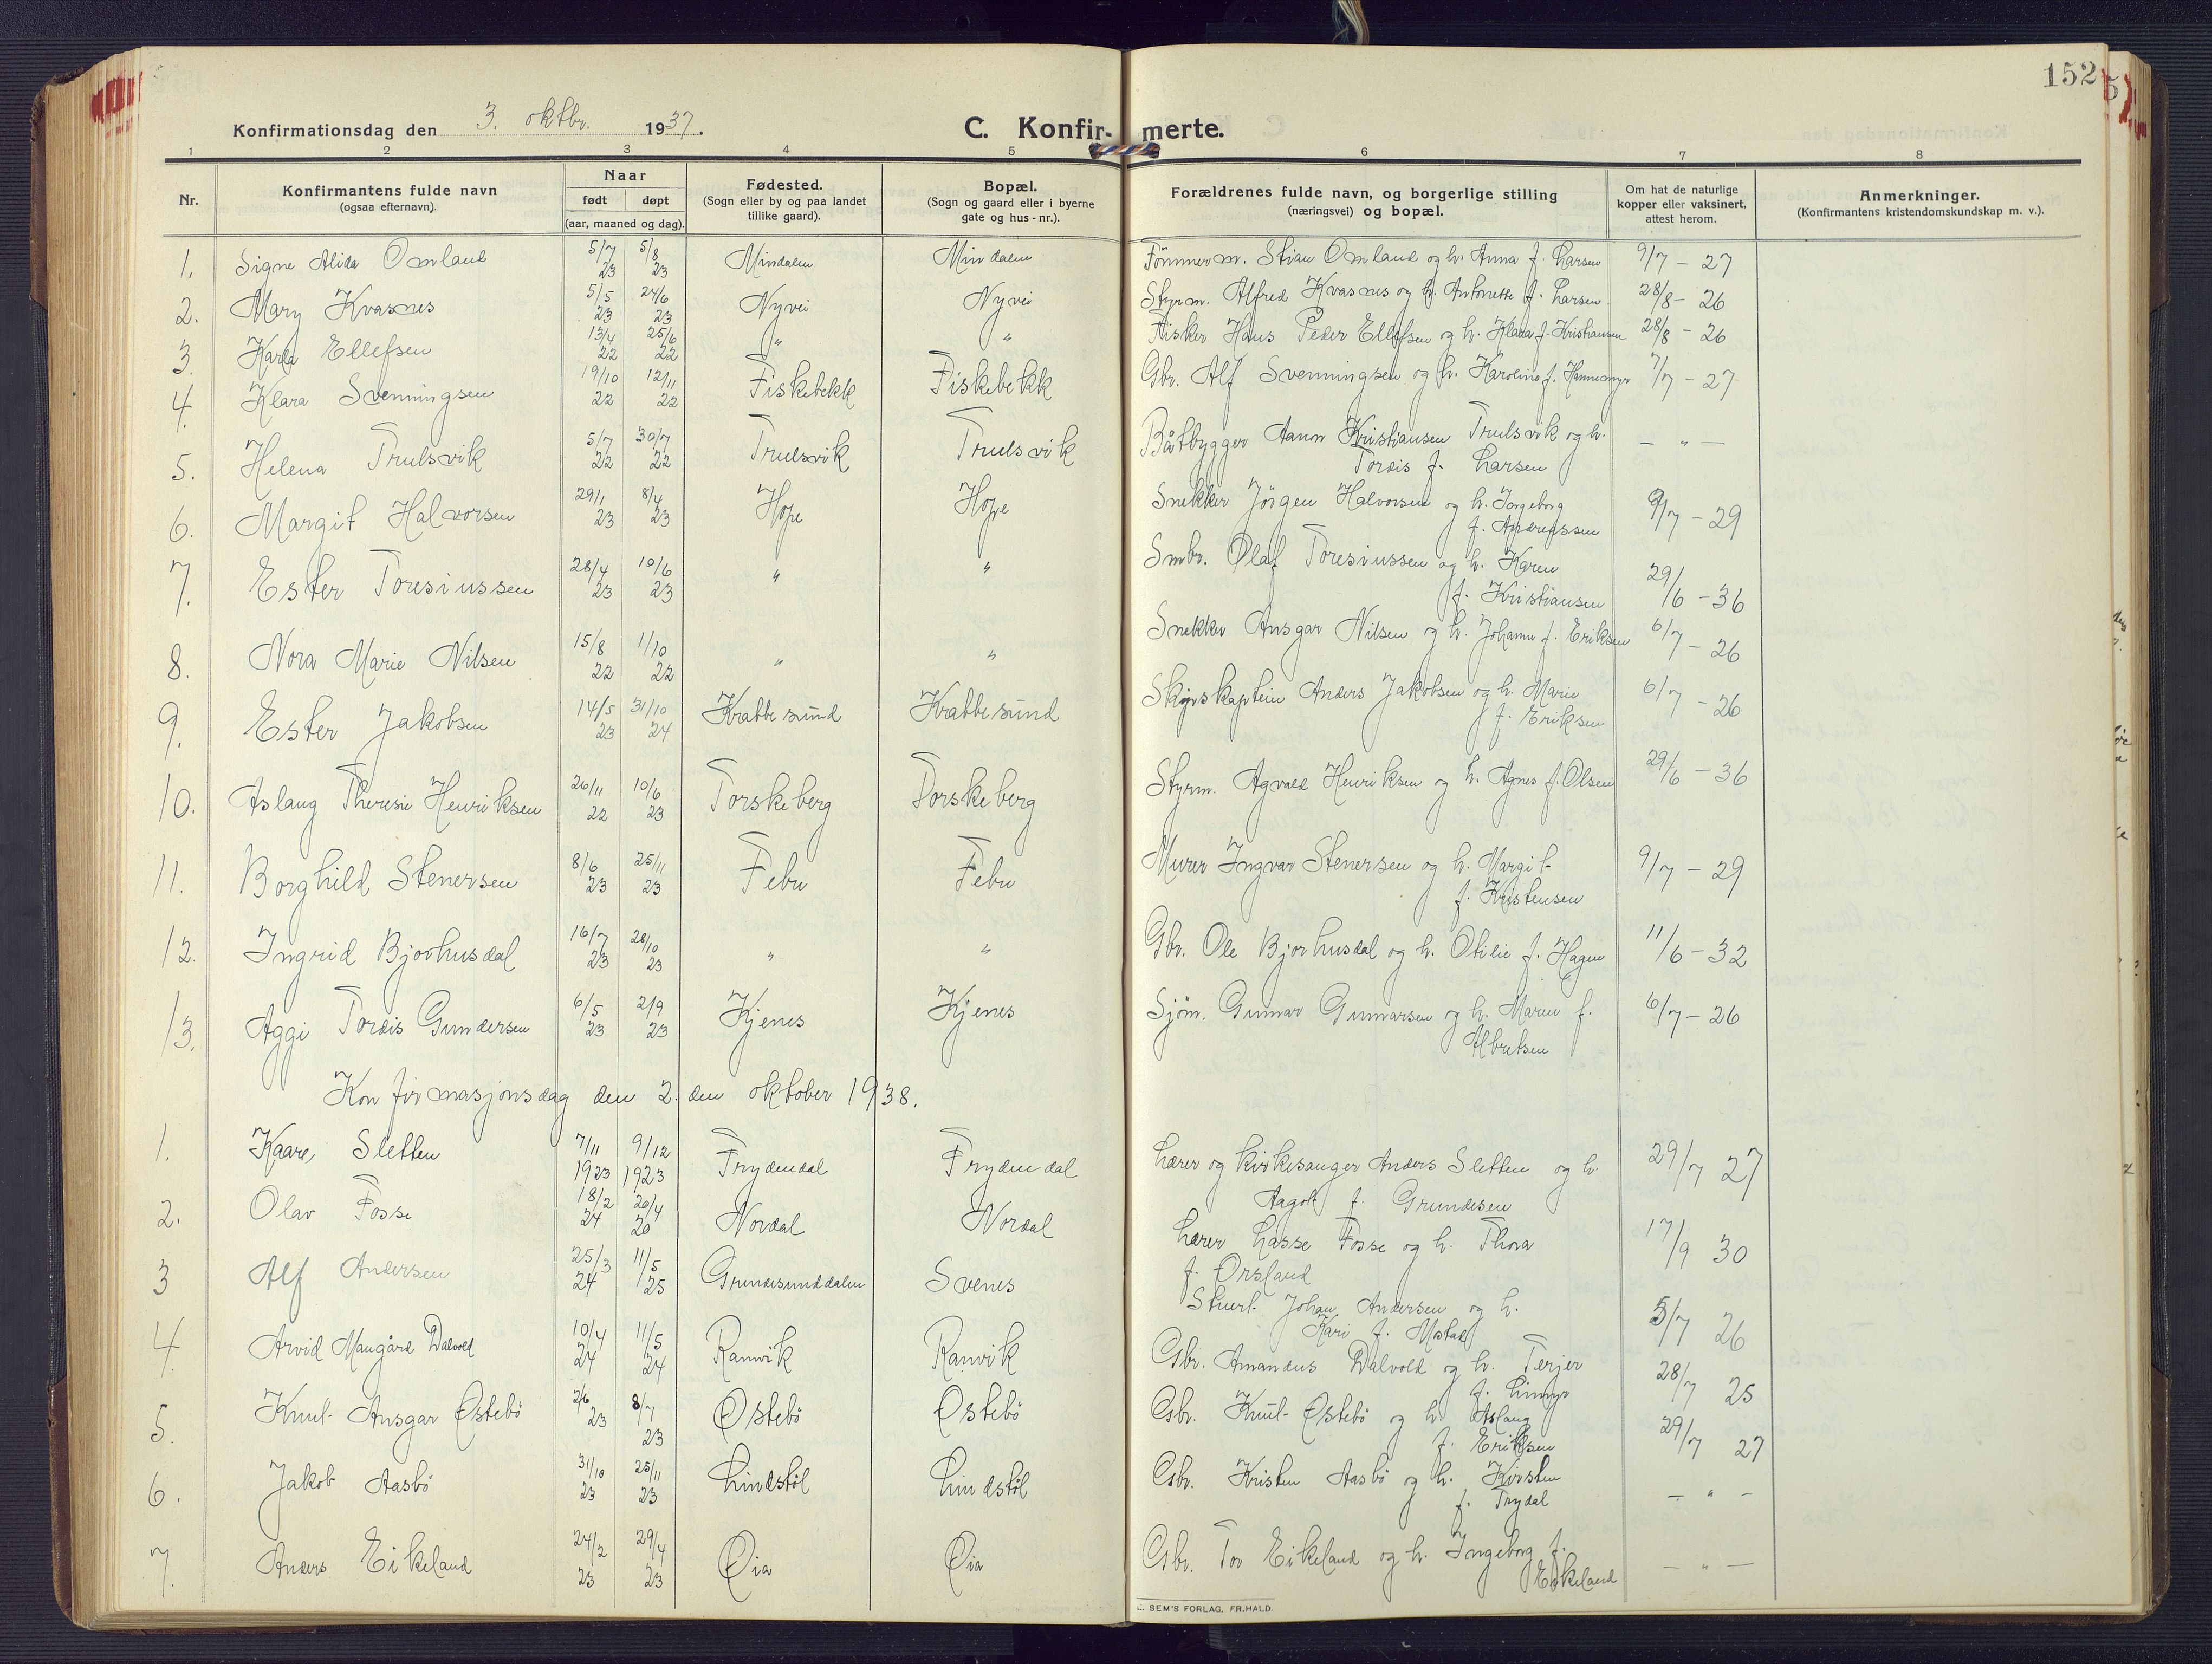 152
Konfirmationsdag den 3. oktbr. 1937.
C. Konfir- merte.
1 2 3 4 5 6 7 8
Nr.
Konfirmantens fulde navn
(ogsaa efternavn).
Naar
født døpt
(aar, maaned og dag).
Fødested.
(Sogn eller by og paa landet
tillike gaard).
Bopæl.
(Sogn og gaard eller i byerne
gate og hus-nr.).
Forældrenes fulde navn, og borgerlige stilling
(næringsvei) og bopæl.
Om hat de naturlige
kopper eller vaksinert,
attest herom.
Anmerkninger.
(Konfirmantens kristendomskundskap m. v.).
1. Signe Alida Omland 5/7 23 5/8 23 Mindalen Mindalen Tömmerm. Stian Omland og h. Anna f. Larsen 9/7 - 27
2. Mary Kvasnes 5/5 23 24/6 23 Nyvei Nyvei Styrm. Alfred Kvasnes og h. Antonette f. Larsen 28/8 - 26
3. Karla Ellefsen 13/4 22 25/6 22 " " Fisker Hans Peder Ellefsen og h. Klara f. Kristiansen 28/8 - 26
4. Klara Svenningsen 19/10 22 12/11 22 Fiskebekk Fiskebekk Gbr. Alf Svenningsen og h. Karoline f. Hannemyr 7/7 - 27
5. Helena Trulsvik 5/7 22 30/7 22 Trulsvik Trulsvik Båtbygger Aanon Kristiansen Trulsvik og h.
Tordis f. Larsen — " —
6. Margit Halvorsen 29/1 23 8/4 23 Hope Hope Snekker Jörgen Halvorsen og h. Ingeborg
f. Andreassen 9/7 - 29
7. Ester Toresiussen 28/4 23 10/6 23 " " Smbr. Olaf Toresiussen og h. Karen
f. Kristiansen 29/6 - 36
8. Nora Marie Nilsen 15/8 22 1/10 22 " " Snekker Ansgar Nilsen og h. Johanne f. Eriksen 6/7 - 26
9. Ester Jakobsen 14/5 23 31/10 24 Krabbesund Krabbesund Skipskaptein Anders Jakobsen og h. Marie
f. Eriksen 6/7 - 26
10. Aslaug Theresie Henriksen 26/11 22 10/6 23 Torskeberg Torskeberg Styrm. Agvald Henriksen og h. Agnes f. Olsen 29/6 - 36
11. Borghild Stenersen 8/6 23 25/11 23 Febu Febu Murer Ingvar Stenersen og h. Margit
f. Kristensen 9/7 - 29
12. Ingrid Bjorhusdal 16/7 23 28/10 23 " " Gbr. Ole Bjorhusdal og h. Otilie f. Hagen 11/6 - 32
13. Aggi Tordis Gundersen 6/5 23 2/9 23 Kjenes Kjenes Sjöm. Gunnar Gunnarsen og h. Maren f.
Albretsen 6/7 - 26
Konfirmasjonsdag den 2. den oktober 1938.
1. Kaare Sletten 7/11 1923 9/12 1923 Frydendal Frydendal Lærer og kirkesanger Anders Sletten og h.
Aagot f. Grundesen 29/7 27
2. Olav Fosse 18/2 24 20/4 20 Nordal Nordal Lærer Lasse Fosse og h. Thora
f. Ørsland 17/9 30
3 Alf Andersen 25/3 24 11/5 25 Grundesunddalen Svenes Stuert Johan Andersen og h.
Kari f. Mostad 5/7 26
4. Arvid Maugård Dalvold 10/4 24 11/5 24 Ranvik Ranvik Gbr. Amandus Dalvold og h. Terjer
f. Limyr 28/7 25
5. Knut Ansgar Østebö 2/6 23 8/7 23 Østebö Østebö Gbr. Knut Østebö og h. Aslaug
f. Eriksen 29/7 27
6. Jakob Aasbö 31/10 23 25/11 23 Lindstöl Lindstöl Gbr. Kristen Aasbö og h. Kirsten
f. Trydal — " —
7. Anders Eikeland 24/2 23 29/4 23 Øia Øia Gbr. Tor Eikeland og h. Ingeborg f.
Eikeland — " —
SEM'S FORLAG. FR.HALD.